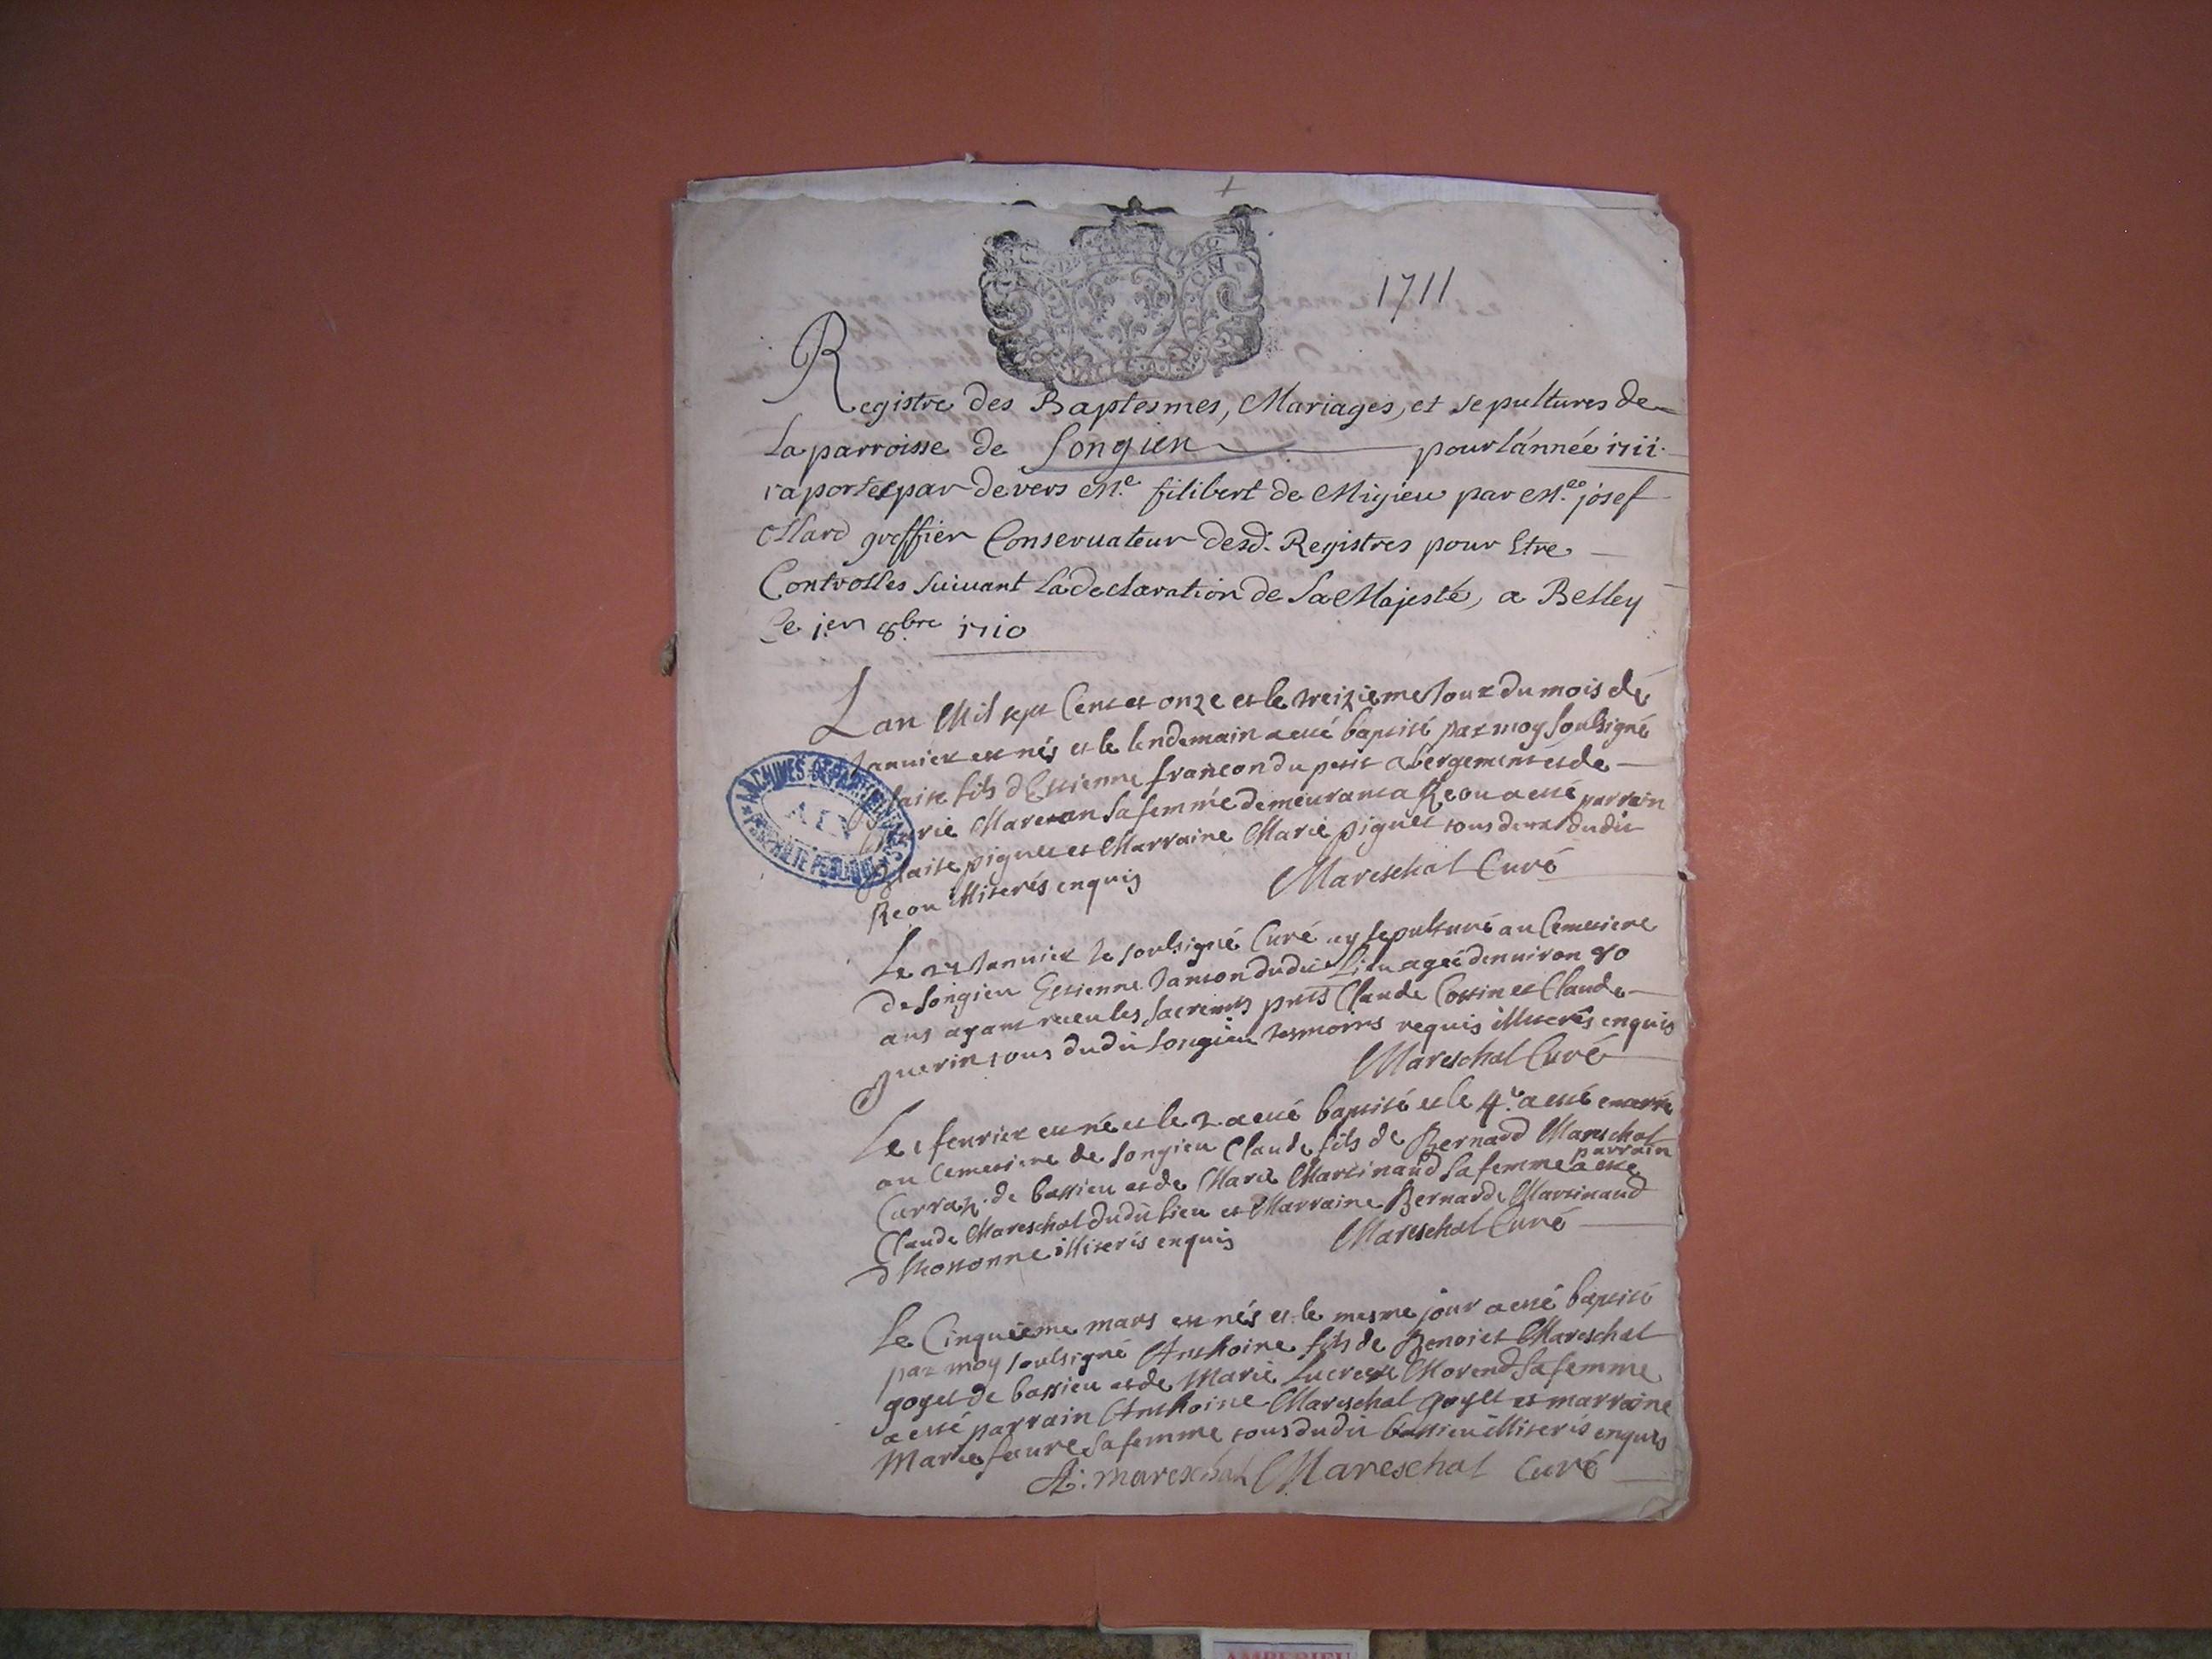 1711
Registre des Baptesmes, Mariages, et sepultures de
La parroisse de Songieu pour l'année 1711.
raportés par devers Me. filibert de Migieu par Me. josef
greffier Conservateur desd. Registres pour Etre
Controlles suivant La declaration de Sa Majesté, a Belley
Le 1er 8bre 1710
Lan Mil sept Cent et onze et le treizieme Jour du mois de
Janvier est nés et le lendemain a esté baptisé par moy soubsigné
fils d'Estienne françon du petit abergement et de
Marie sa femme demeurant a Reou a esté parrain
Blaise piguet et Marraine Marie piguet tous deux dudit
Reou illiterés enquis Mareschal Curé
Le 27 Janvier Je soubsigné Curé ay sepulturé au Cemetiere
de Songieu Estienne dudit Lieu agée d'environ 90
ans ayant receu les sacremts pnts Claude Cottin et Claude
guerin tous dudit Songieu tesmoins requis illiterés enquis
Mareschal Curé
Le 1 fevrier est né et le 2 a esté baptisé et le 4e a esté enterré
au Cemetiere de Songieu Claude fils de Bernard Mareschal
Carraz de bassieu et de Marie Martinand sa femme a esté parrain
Claude Mareschal dudit lieu et Marraine Bernarde Martinand
d'hotonne illiterés enquis Mareschal Curé
Le Cinquieme mars est nés et le mesme jour a esté baptisé
par moy soubsigné Anthoine fils de Benoist Mareschal
goyet de bassieu et de Marie Lucresse Morend sa femme
a esté parrain Anthoine Mareschal goyet et marraine
Marie faure sa femme tous dudit bassieu illiterés enquis
A: mareschal Mareschal Curé
ARCHIVES DÉPARTEMENTALES
AIN
PROPRIÉTÉ PUBLIQUE
AMBERIEU